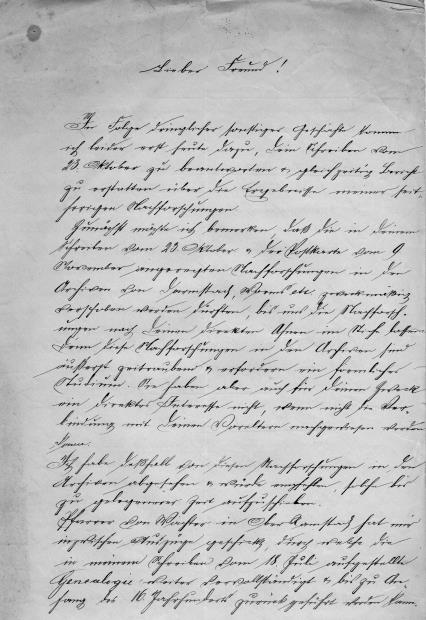 Lieber Freund!
In Folge dringlicher sonstiger Geschäfte komme
ich leider erst heute dazu, Dein Schreiben vom
23. Oktober zu beantworten & gleichzeitig Bericht
zu erstatten über die Ergebnisse meiner seit-
herigen Nachforschungen.
Zunächst möchte ich bemerken, daß die in Deinem
Schreiben vom 23 Oktober & der Postkarte vom 9
November angeregten Nachforschungen in den
Archiven von Darmstadt, Worms etc. zweckmäßig
verschoben werden dürften, bis uns die Nachforsch-
ungen nach Deinen direkten Ahnen im
Denn diese Nachforschungen in den Archiven sind
äußerst zeitraubend & erfordern ein förmliches
Studium. Sie haben aber auch für Deinen Zweck
ein direktes Interesse nicht, wenn nicht die Ver-
bindung mit Deinen Voreltern nachgewiesen werden
kann.
Ich habe deßhalb von diesen Nachforschungen in den
Archiven abgesehen & würde empfehlen, selbe bis
zu gelegenerer Zeit aufzuschieben.
Pfarrer von Wachter in Ober Ramstadt hat mir
inzwischen Auszüge geschickt, durch welche die
in meinem Schreiben vom 18. Juli aufgestellte
Genealogie weiter vervollständigt & bis zu An-
fang des 16. Jahrhunderts zurück geführt werden kann.